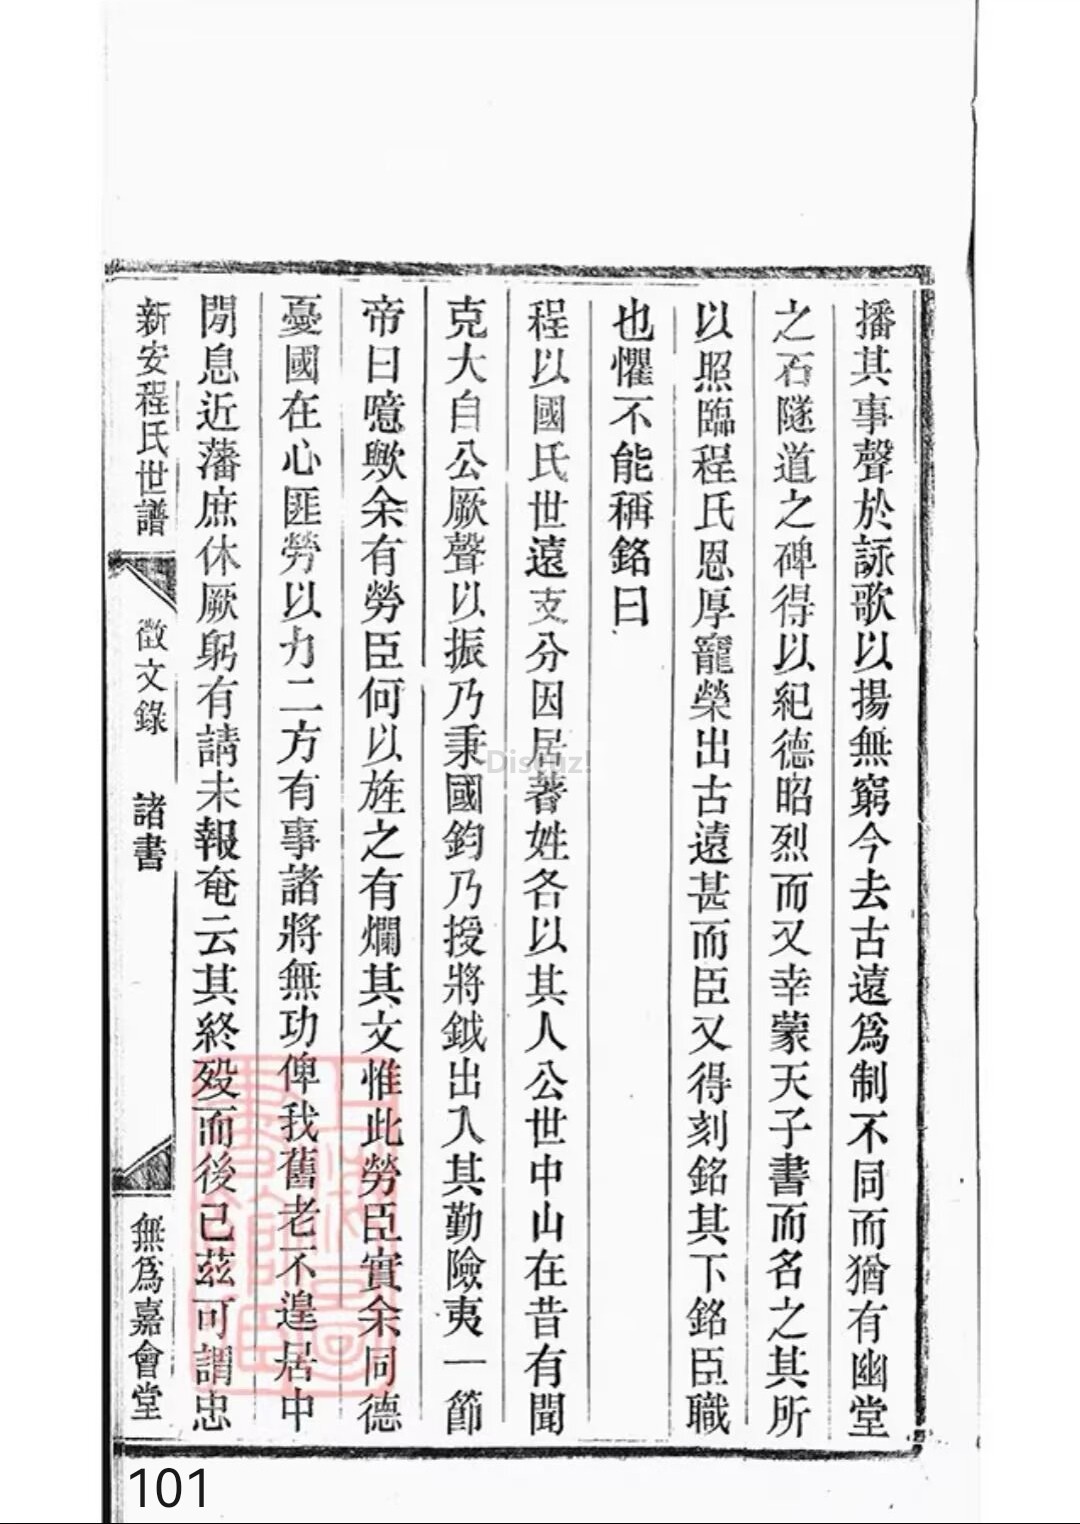 播其事聲於詠歌以揚無窮今去古遠爲制不同而猶有幽堂
之石隧道之碑得以紀德昭烈而又幸蒙天子書而名之其所
以照臨程氏恩厚寵榮出古遠甚而臣又得刻銘其下銘臣職
也懼不能稱銘曰
程以國氏世遠支分因居著姓各以其人公世中山在昔有聞
克大自公厥聲以振乃秉國鈞乃授將鉞出入其勤險夷一節
帝曰噫歟余有勞臣何以旌之有爛其文惟此勞臣實余同德
憂國在心匪勞以力二方有事諸將無功俾我舊老不遑居中
閒息近藩庶休厥躬有請未報奄云其終歿而後已茲可謂忠
新安程氏世譜
徵文錄
諸書
無爲嘉會堂
Discuz!
101